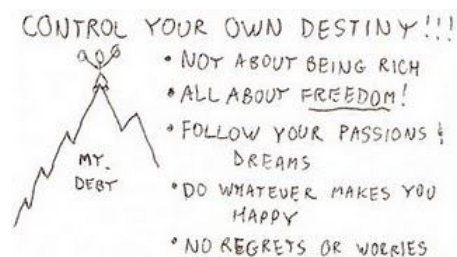 CONTROL YOUR OWN DESTINY!!!
• NOT ABOUT BEING RICH
• ALL ABOUT FREEDOM!
• FOLLOW YOUR PASSIONS &
DREAMS
• DO WHATEVER MAKES YOU
HAPPY
• NO REGRETS OR WORRIES
MT.
DEBT